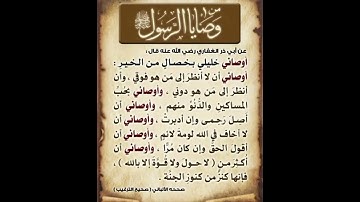 من
وصايا الرسول ﷺ
عن أبي ذر الغفاري رضي الله عنه قال :
أوصاني خليلي بخصال من الخير :
أوصاني أن لا أنظر إلى من هو فوقي ، وأن
أنظر إلى من هو دوني ، وأوصاني بحب
المساكين والدنو منهم ، وأوصاني أن
أصل رحمي وإن أدبرت ، وأوصاني أن
لا أخاف في الله لومة لائم ، وأوصاني أن
أقول الحق وإن كان مرا ، وأوصاني أن
أكثر من ( لا حول ولا قوة إلا بالله ) ،
فإنها كنز من كنوز الجنة .
صححه الألباني ( صحيح الترغيب )